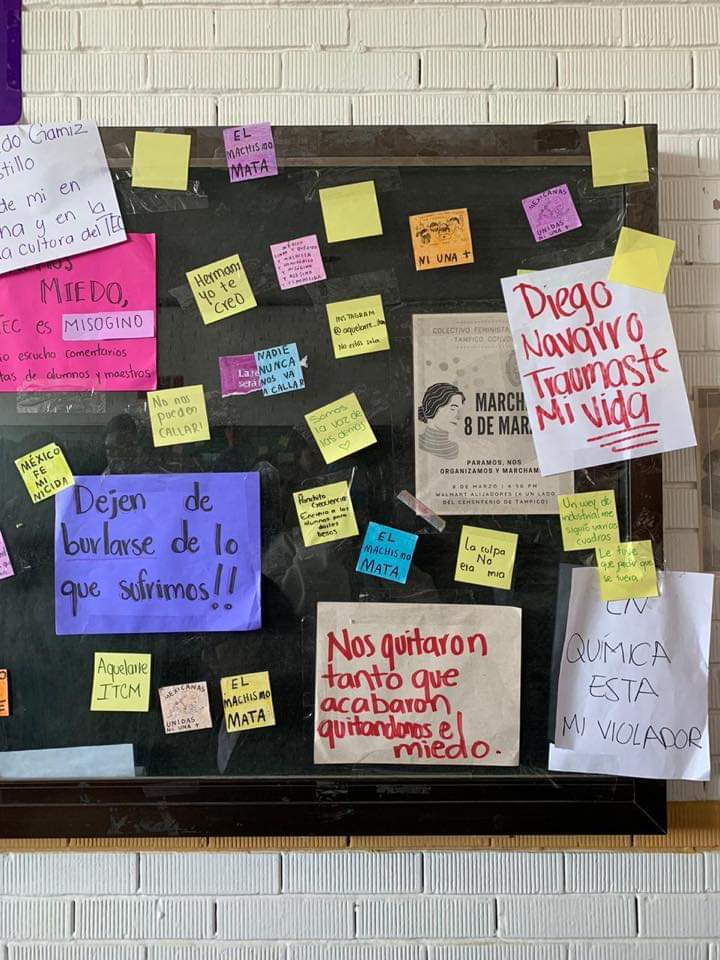 do Gamiz
stillo
de mi en
na y en la
a cultura del TEC
MIEDO,
TEC es MISOGINO
o escucho comentarios
tas de alumnos y maestros
EL
MACHISMO
MATA
Hermana
yo te
creo
NI UNA +
MEXICANAS
UNIDAS
NI UNA +
INSTAGRAM
No estás sola
NADIE
NUNCA
NOS VA
A CALLAR
No nos
pueden
CALLAR!
Somos
la voz de
las demás
COLECTIVO FEMINISTA
TAMPICO
MARCH
8 DE MAR
PARAMOS, NOS
ORGANIZAMOS Y MARCHAM
8 DE MARZO | 4:30 PM
WALMART ALIJADORES (A UN LADO
DEL CEMENTERIO DE TAMPICO)
Diego
Navarro
Traumaste
Mi vida
MÉXICO
FE
MI
NICIDA
Dejen de
burlarse de lo
que sufrimos!!
alumnas para
darles
besos
EL
MACHISMO
MATA
La culpa
No
era mia
Un wey de
industrial me
siguió varias
cuadras
Le tuve
que pedir que
se fuera
EN
QUÍMICA
ESTA
MI VIOLADOR
Aquelarre
ITCM
MEXICANAS
UNIDAS
NI UNA +
EL
MACHISMO
MATA
Nos quitaron
tanto que
acabaron
quitandonos el
miedo.